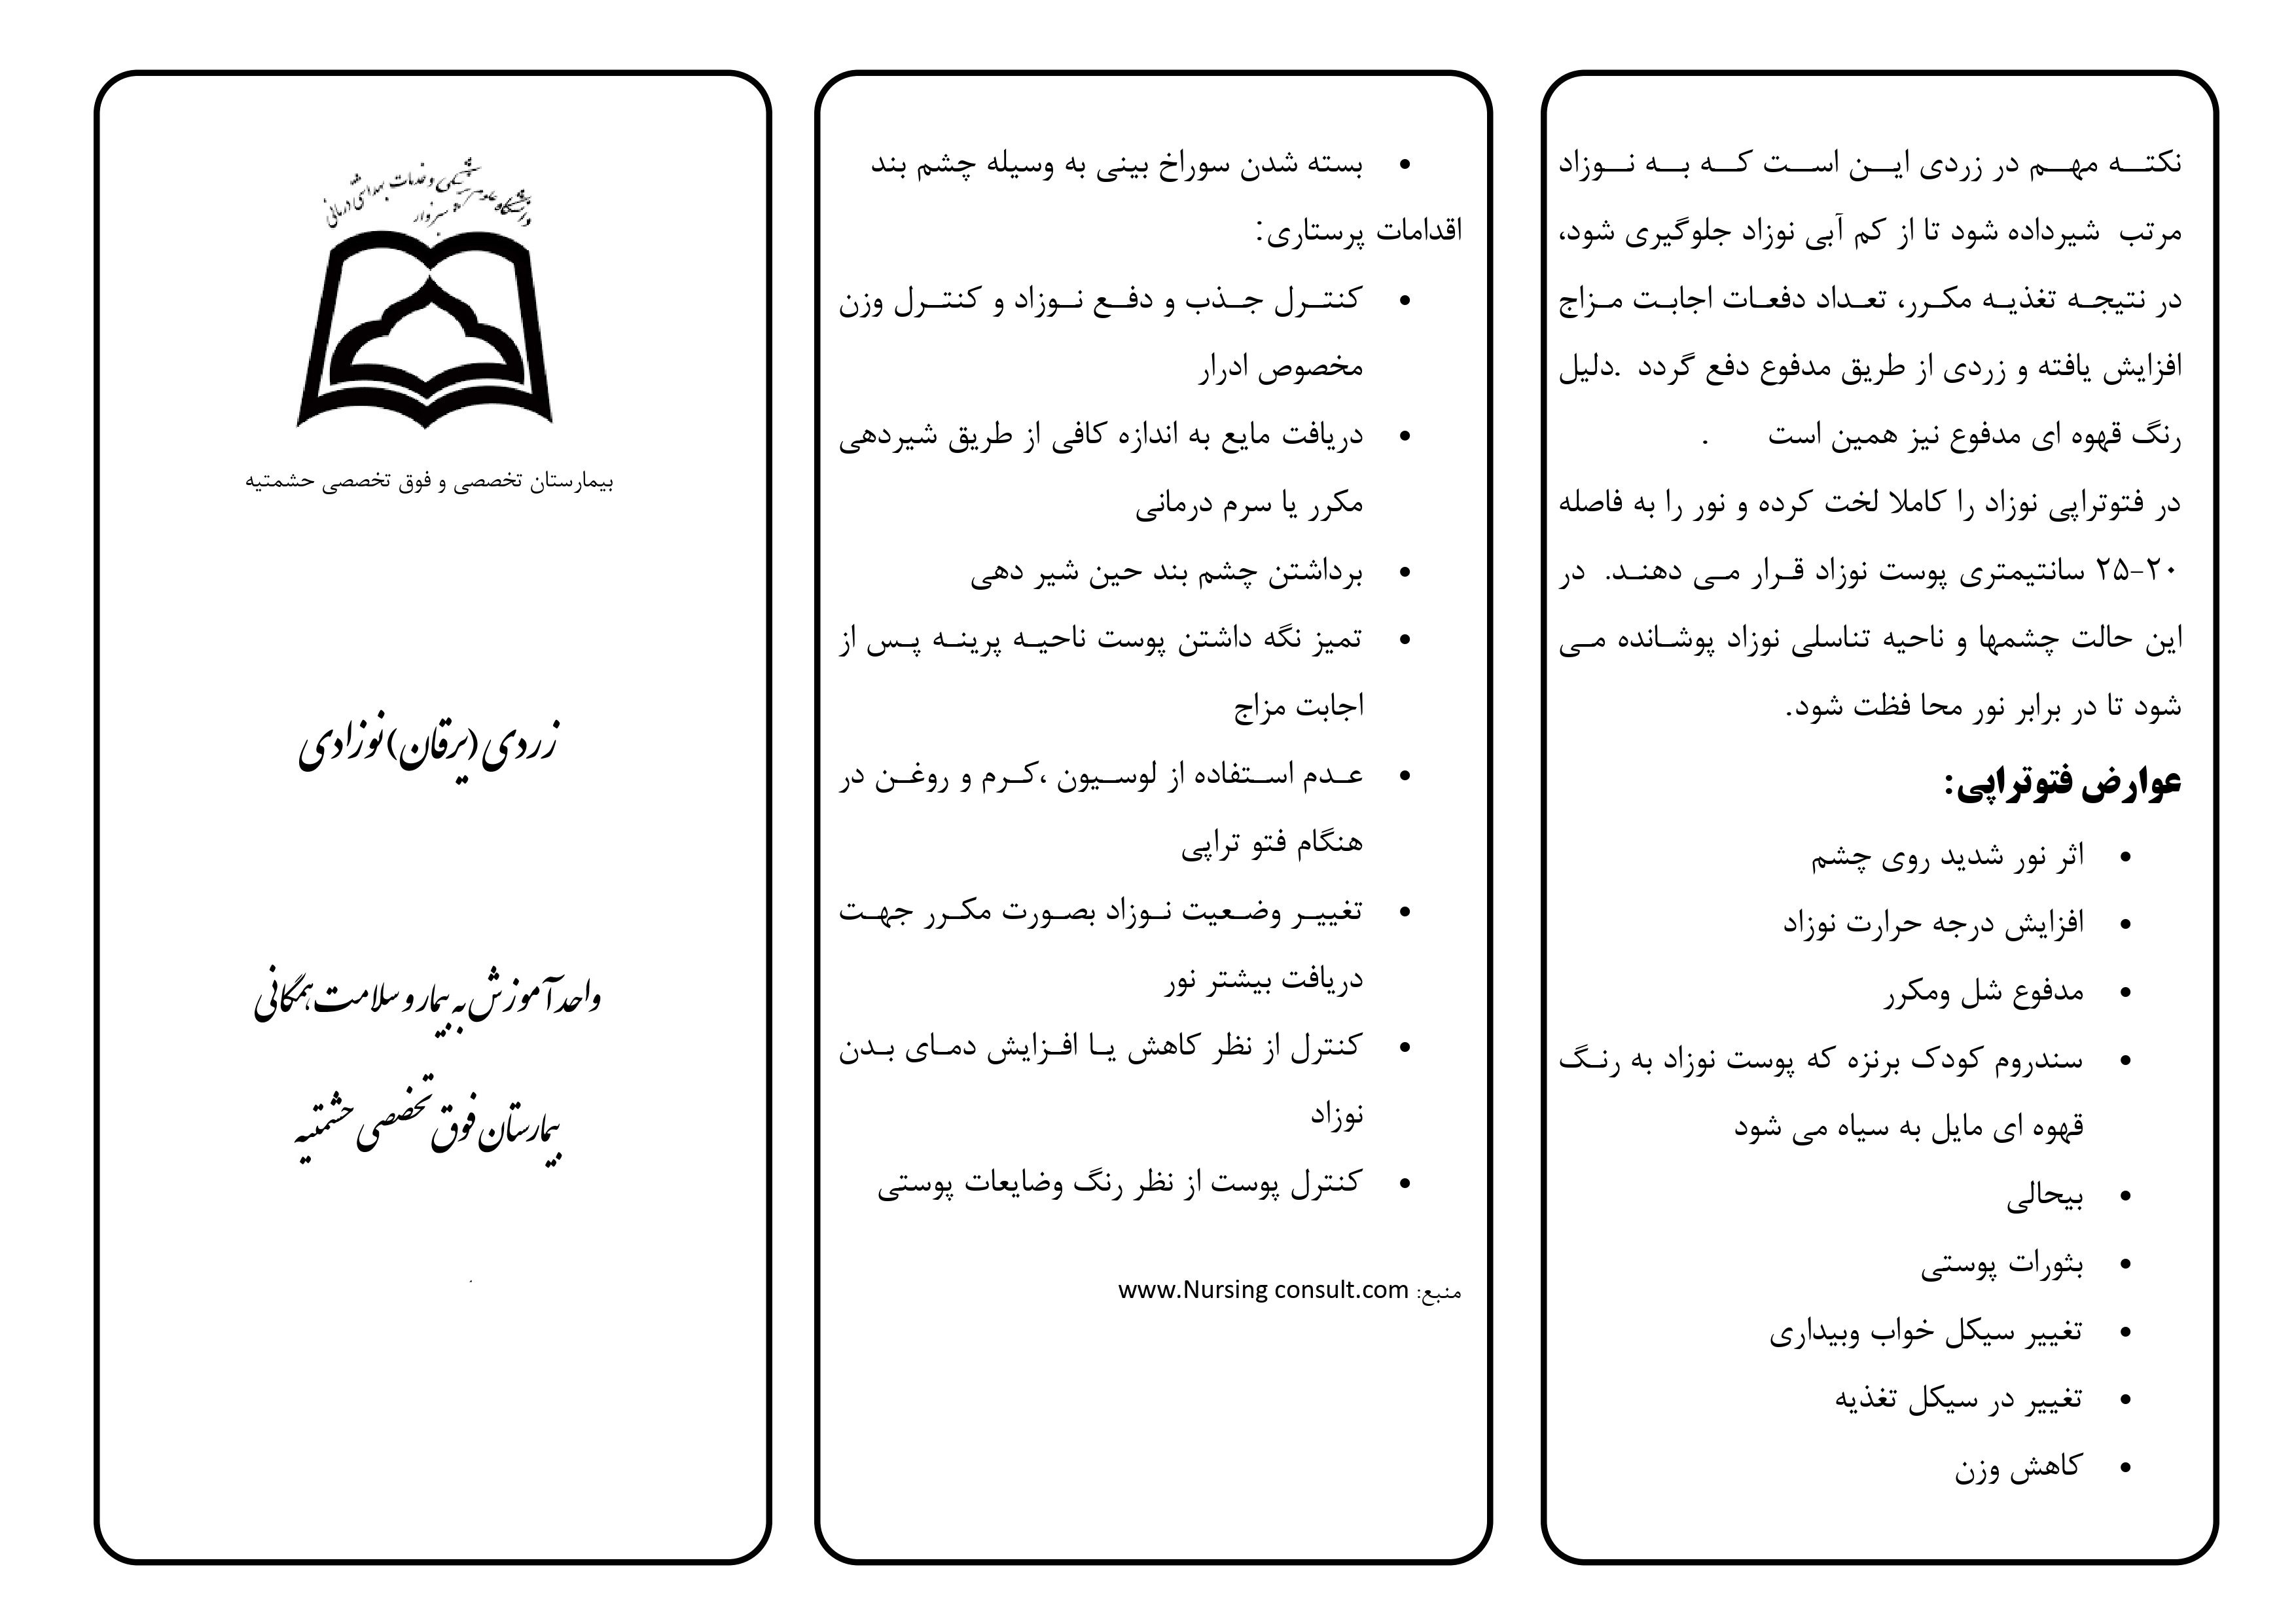 نکته مهم در زردی این است که به نوزاد
مرتب شیرداده شود تا از کم آبی نوزاد جلوگیری شود،
در نتیجه تغذیه مکرر، تعداد دفعات اجابت مزاج
افزایش یافته و زردی از طریق مدفوع دفع گردد .دلیل
رنگ قهوه ای مدفوع نیز همین است .
در فتوتراپی نوزاد را کاملا لخت کرده و نور را به فاصله
۲۰-۲۵ سانتیمتری پوست نوزاد قرار می دهند. در
این حالت چشمها و ناحیه تناسلی نوزاد پوشانده می
شود تا در برابر نور محا فظت شود.
عوارض فتوتراپی:
• اثر نور شدید روی چشم
• افزایش درجه حرارت نوزاد
• مدفوع شل ومکرر
• سندروم کودک برنزه که پوست نوزاد به رنگ
قهوه ای مایل به سیاه می شود
• بیحالی
• بثورات پوستی
• تغییر سیکل خواب وبیداری
• تغییر در سیکل تغذیه
• کاهش وزن
• بسته شدن سوراخ بینی به وسیله چشم بند
اقدامات پرستاری:
• کنترل جذب و دفع نوزاد و کنترل وزن
مخصوص ادرار
• دریافت مایع به اندازه کافی از طریق شیردهی
مکرر یا سرم درمانی
• برداشتن چشم بند حین شیر دهی
• تمیز نگه داشتن پوست ناحیه پرینه پس از
اجابت مزاج
• عدم استفاده از لوسیون ،کرم و روغن در
هنگام فتو تراپی
• تغییر وضعیت نوزاد بصورت مکرر جهت
دریافت بیشتر نور
• کنترل از نظر کاهش یا افزایش دمای بدن
نوزاد
• کنترل پوست از نظر رنگ وضایعات پوستی
منبع: www.Nursing consult.com
دانشگاه علوم پزشکی و خدمات بهداشتی درمانی
سبزوار
بیمارستان تخصصی و فوق تخصصی حشمتیه
زردی (یرقان) نوزادی
واحد آموزش به بیمار و سلامت همگانی
بیمارستان فوق تخصصی حشمتیه